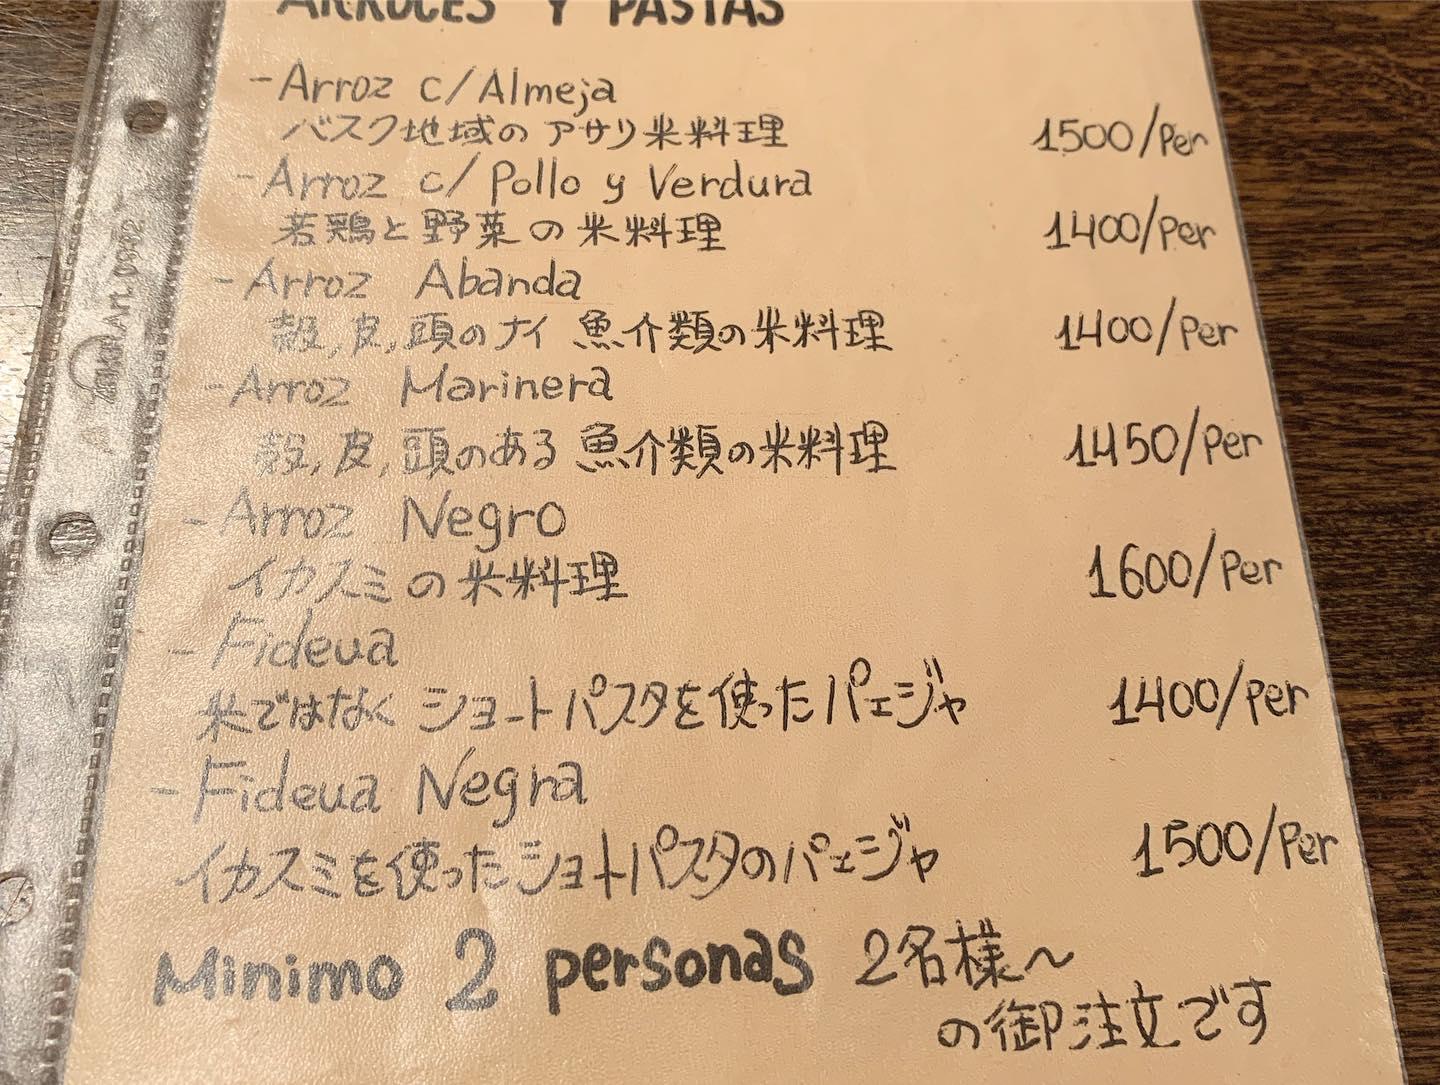 ARROCES Y PASTAS
- Arroz c/Almeja
バスク地域のアサリ米料理 1500/Per
- Arroz c/Pollo y Verdura
若鶏と野菜の米料理 1400/Per
- Arroz Abanda
殻,皮,頭のナイ魚介類の米料理 1400/Per
- Arroz Marinera
殻,皮,頭のある魚介類の米料理 1450/Per
- Arroz Negro
イカスミの米料理 1600/Per
- Fideua
米ではなくショートパスタを使ったパエジャ 1400/Per
- Fideua Negra
イカスミを使ったショートパスタのパエジャ 1500/Per
Minimo 2 personas 2名様〜
の御注文です